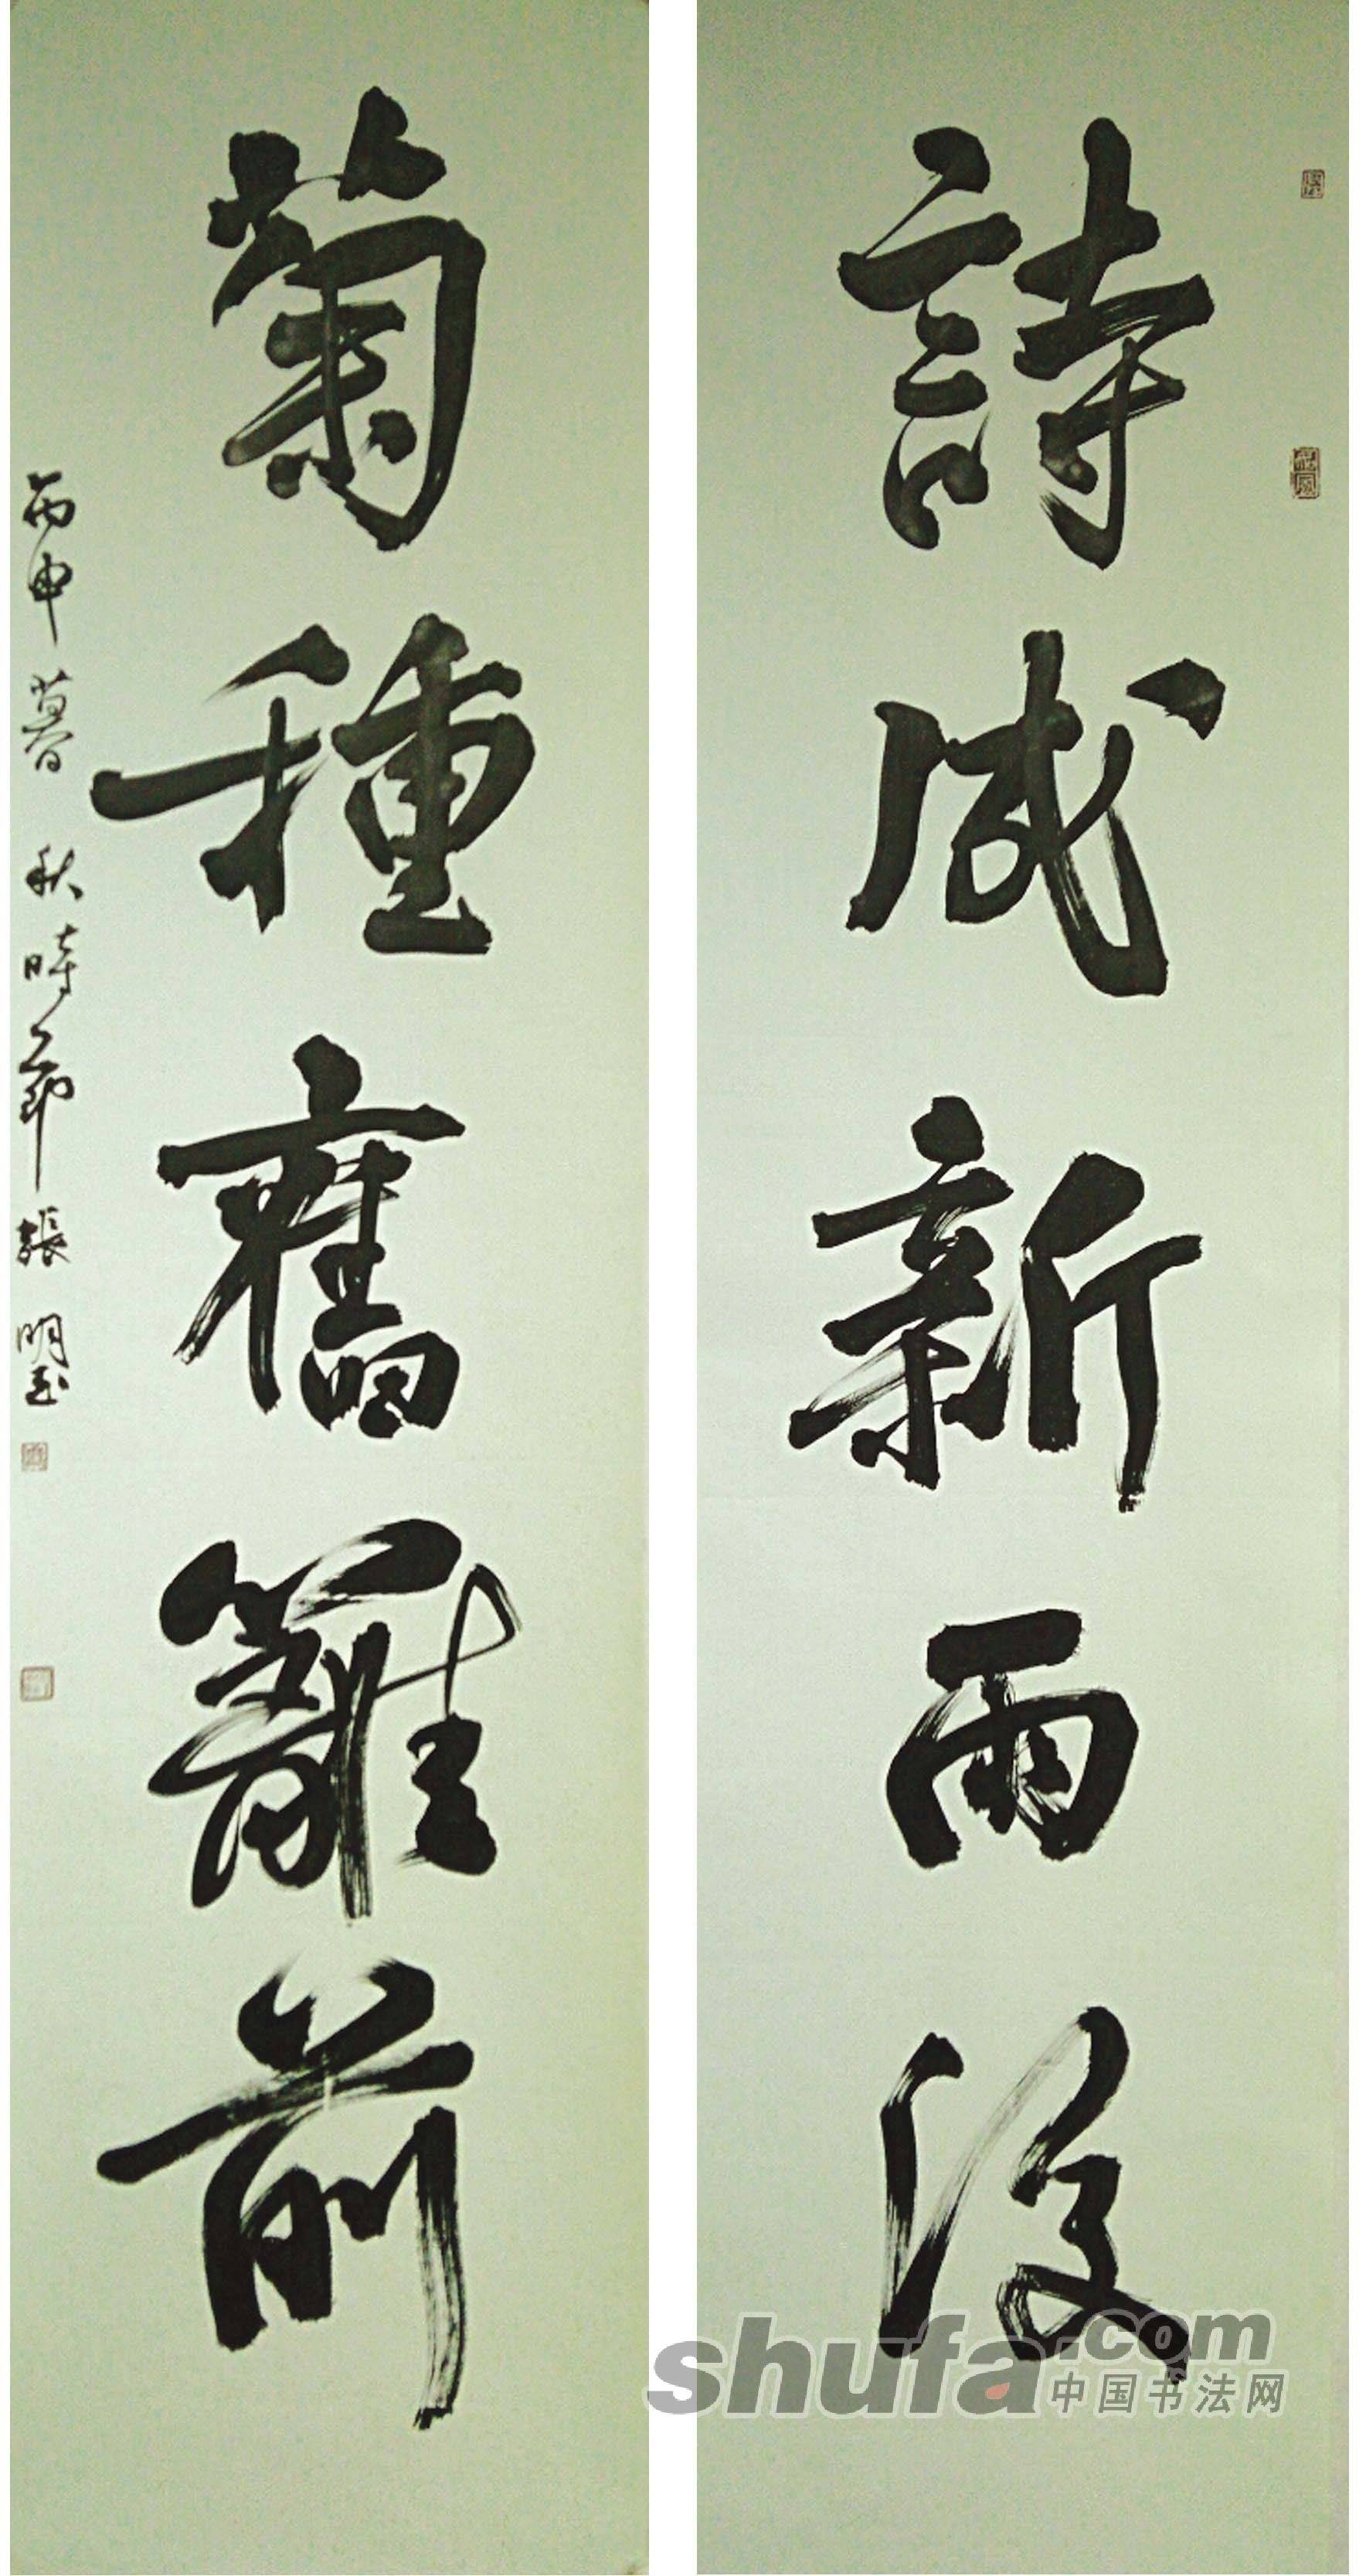 詩成新雨後
菊種舊籬前
丙申暮秋時節張明玉
shufa.com
中国书法网